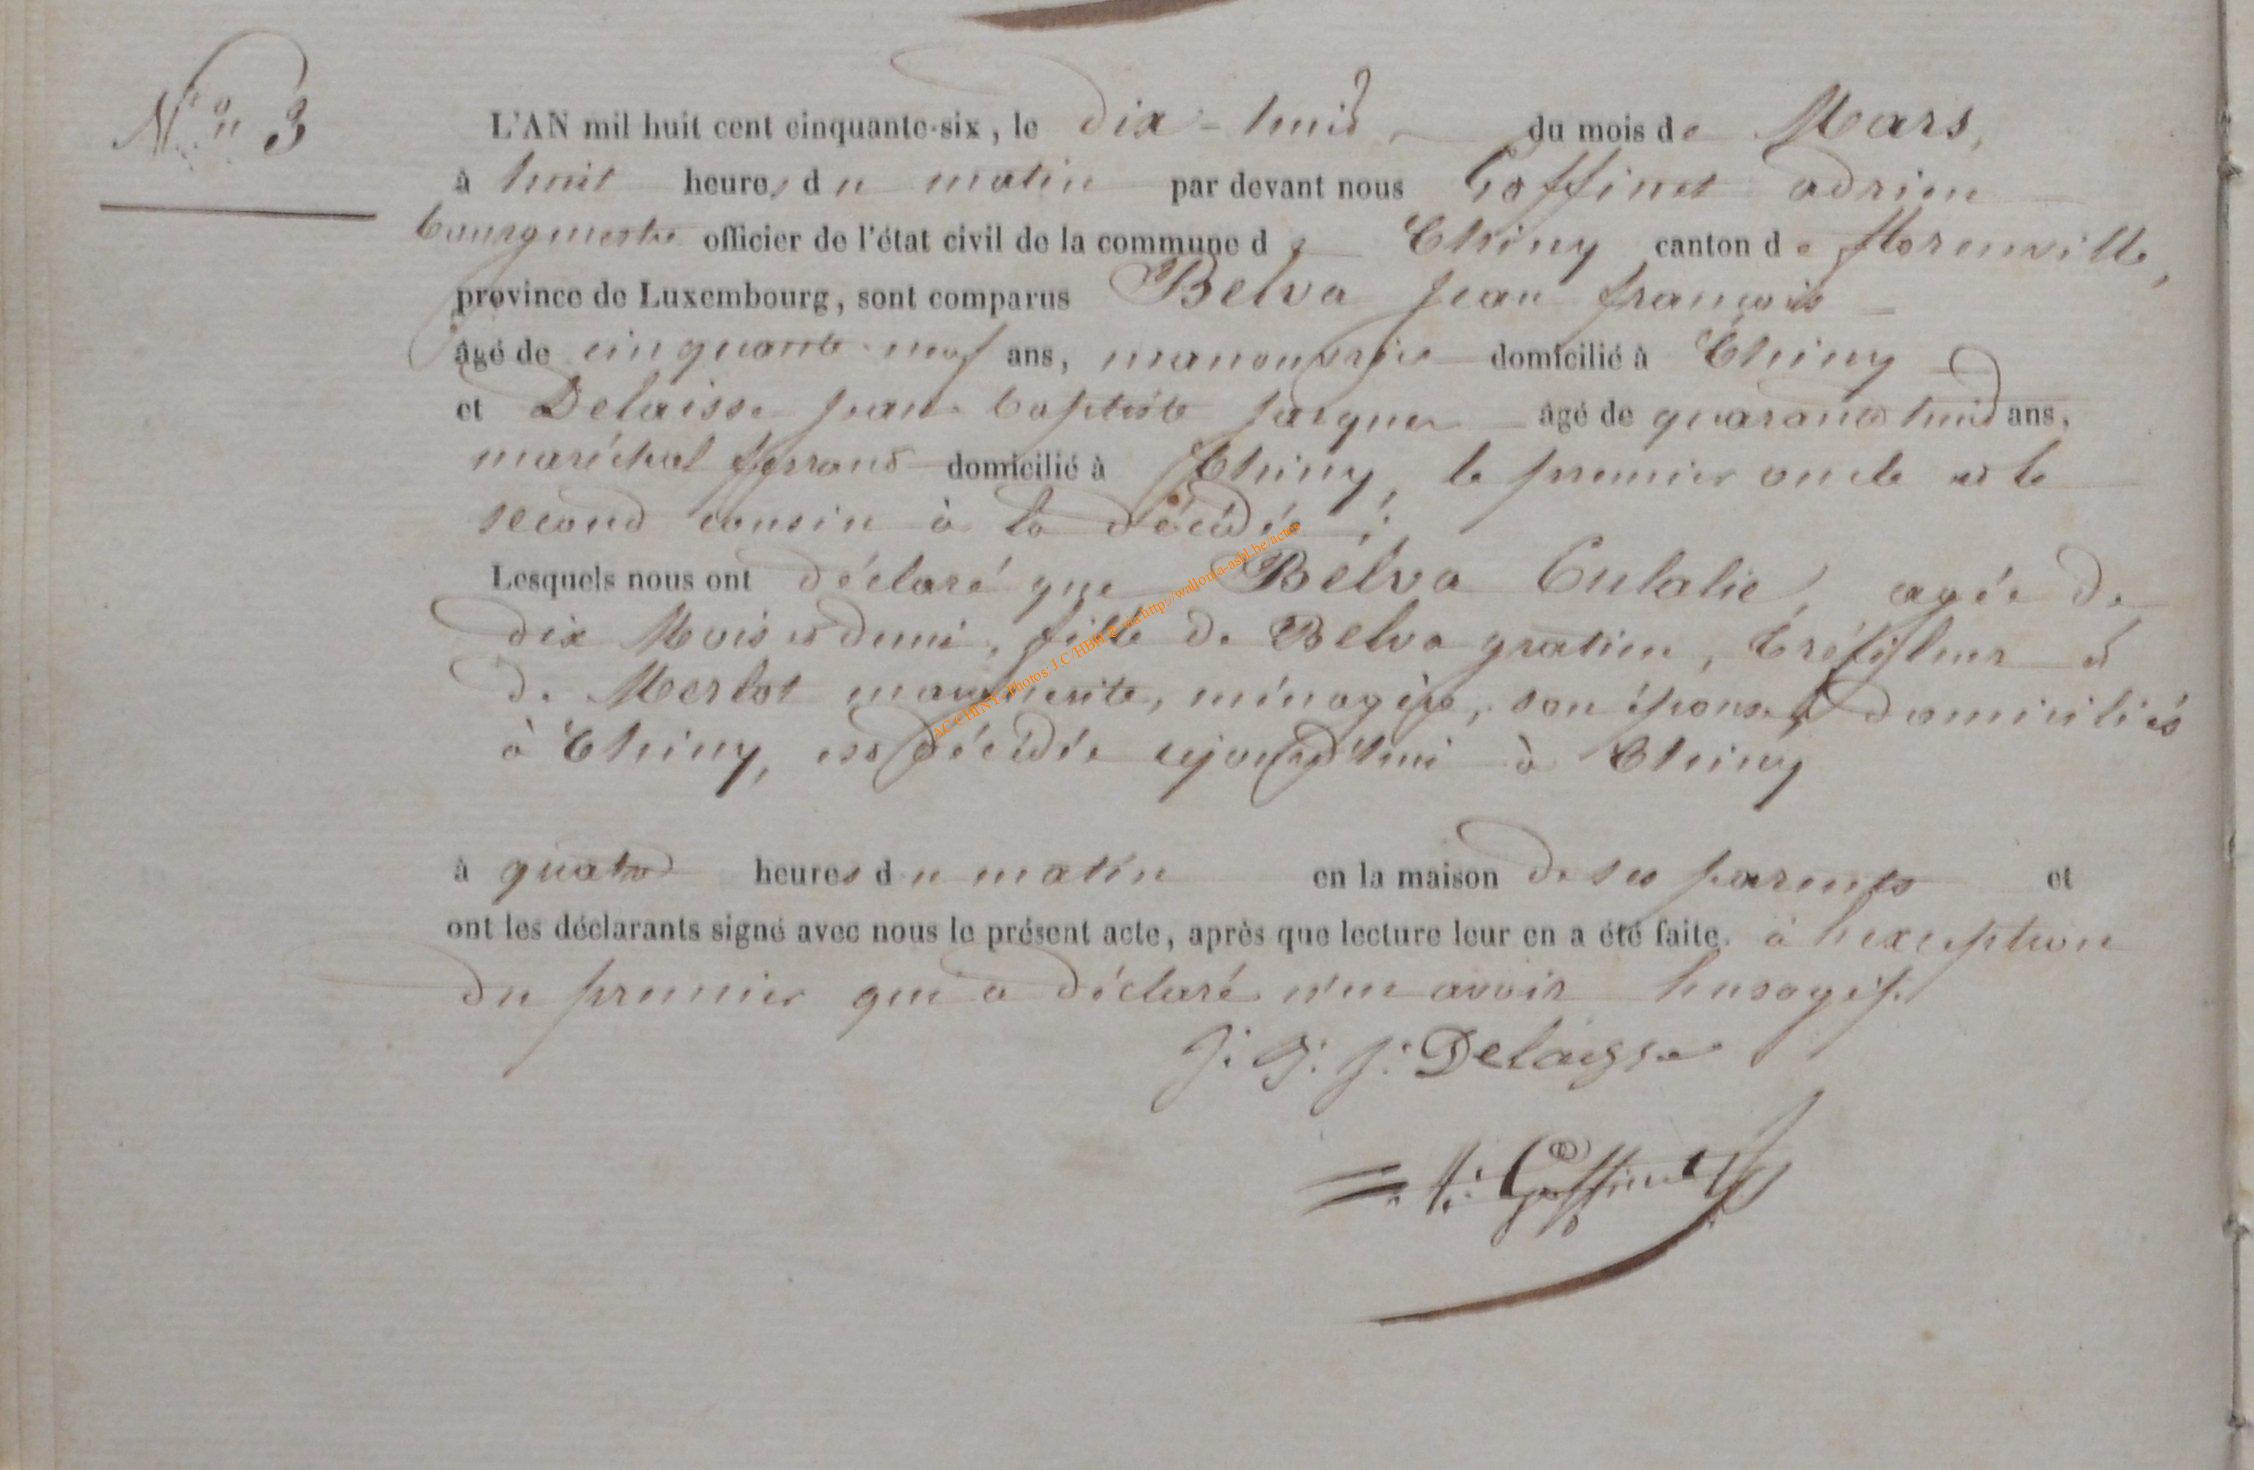 N° 3
L'AN mil huit cent cinquante-six, le dix-huit du mois de Mars,
à huit heures du matin par devant nous Goffinet adrien
bourgmestre officier de l'état civil de la commune de Chiny canton de florenville,
province de Luxembourg, sont comparus Belva jean françois
âgé de cinquante-neuf ans, manouvrier domicilié à Chiny
et Delaisse jean baptiste jacques âgé de quarante huit ans,
maréchal ferrant domicilié à Chiny, le premier oncle et le
second cousin à la décédée ;
Lesquels nous ont déclaré que Belva Eulalie, agée de
dix Mois et demi, fille de Belva gratien, tréfileur et
de Merlot marguerite, ménagère, son épouse, domiciliés
à Chiny, est décédée cejourd'hui à Chiny
à quatre heures du matin en la maison de ses parents et
ont les déclarants signé avec nous le présent acte, après que lecture leur en a été faite. à l'exception
du premier qui a déclaré n'en avoir l'usage
J. B. J. Delaisse
A. Goffinet
AC CHINY Photos J.C. HBR via http://wallonia-asbl.be/actes